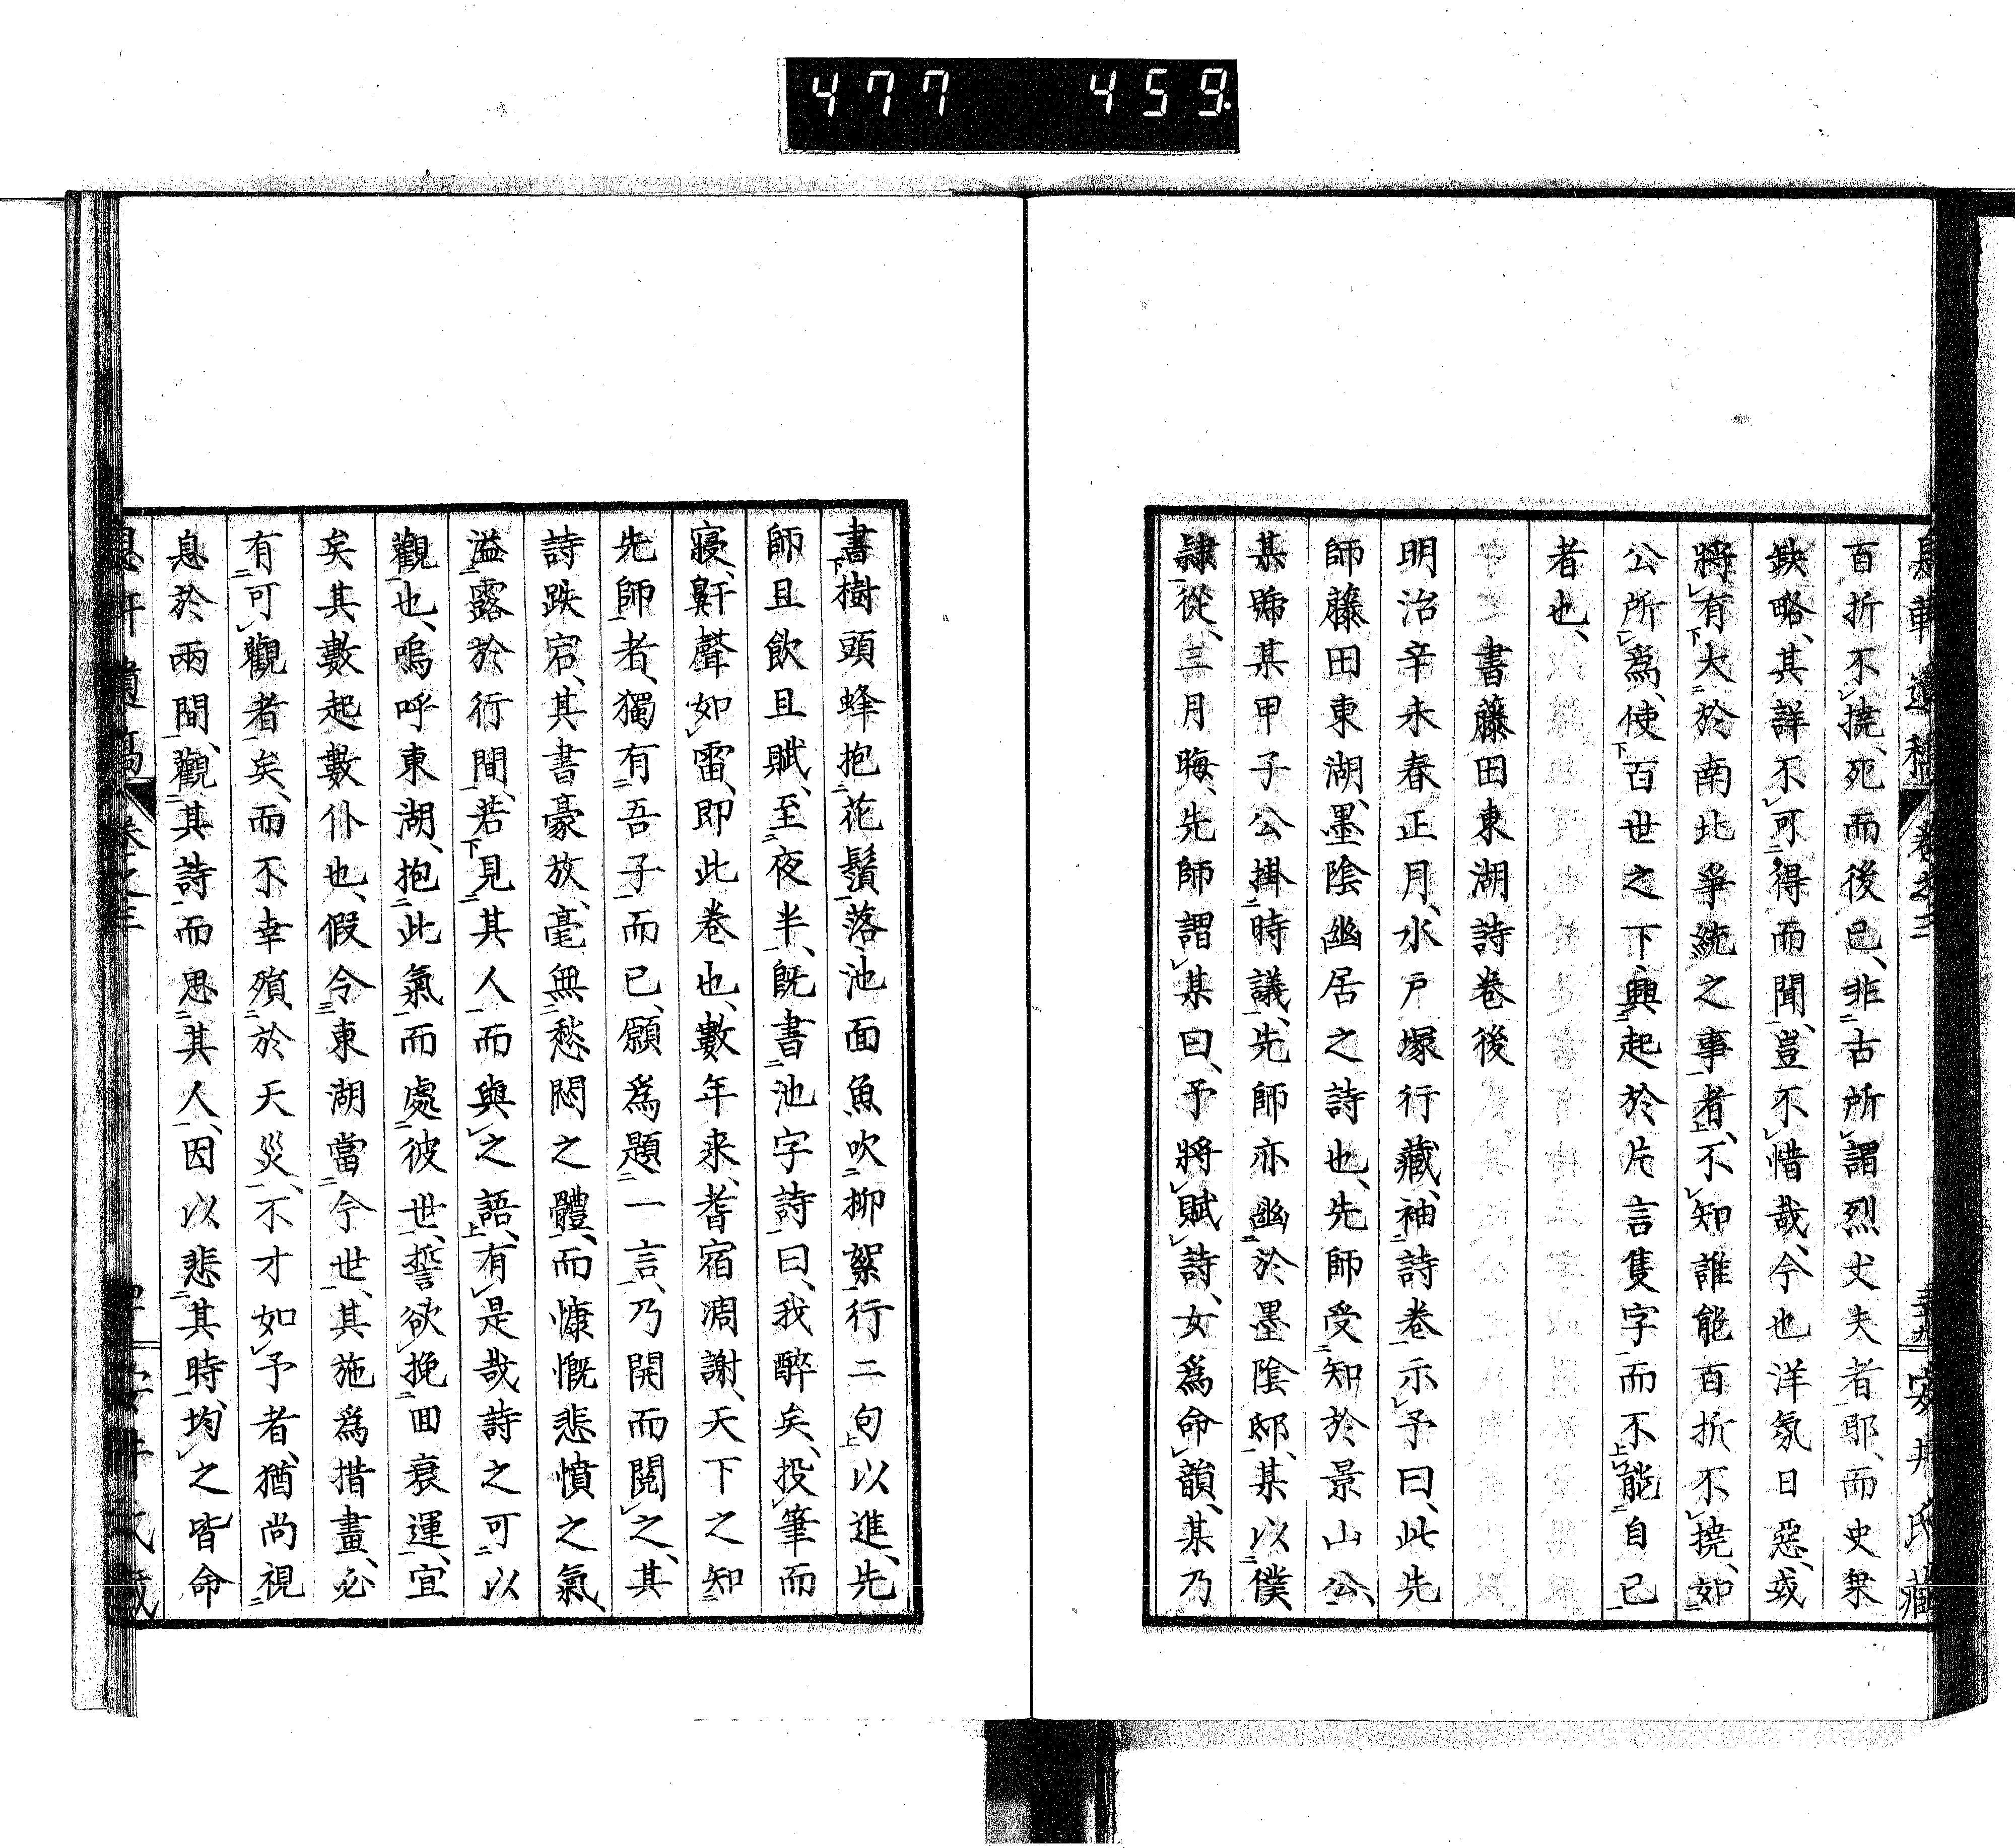 477 459
百折不撓、死而後已、非古所謂烈丈夫者耶、而史策
缺略、其詳不可得而聞、豈不惜哉、今也洋氛日惡、或
將有大於南北爭統之事者、不知誰能百折不撓、如
公所爲、使百世之下、興起於片言隻字而不能自已
者也、
書藤田東湖詩卷後
明治辛未春正月、水戸塚行藏、袖詩卷示予曰、此先
師藤田東湖、墨陰幽居之詩也、先師受知於景山公、
某歸某甲子公掛時議、先師亦幽於墨陰邸、某以僕
隷從、三月晦、先師謂某曰、予將賦詩、女爲命韻、某乃
書樹頭蜂抱花鬚落、池面魚吹柳絮行二句以進、先
師且飲且賦、至夜半、既書池字詩曰、我醉矣、投筆而
寢、鼾聲如雷、即此卷也、數年来、耆宿凋謝、天下之知
先師者、獨有吾子而已、願爲題一言、乃開而閲之、其
詩跌宕、其書豪放、毫無愁悶之體、而慷慨悲憤之氣、
溢露於行間、若見其人而與之語、有是哉詩之可以
觀也、嗚呼東湖、抱此氣而處彼世、誓欲挽回衰運、宜
矣其數起數仆也、假令東湖當今世、其施爲措畫、必
有可觀者矣、而不幸殞於天災、不才如予者、猶尚視
息於兩間、觀其詩而思其人、因以悲其時、均之皆命